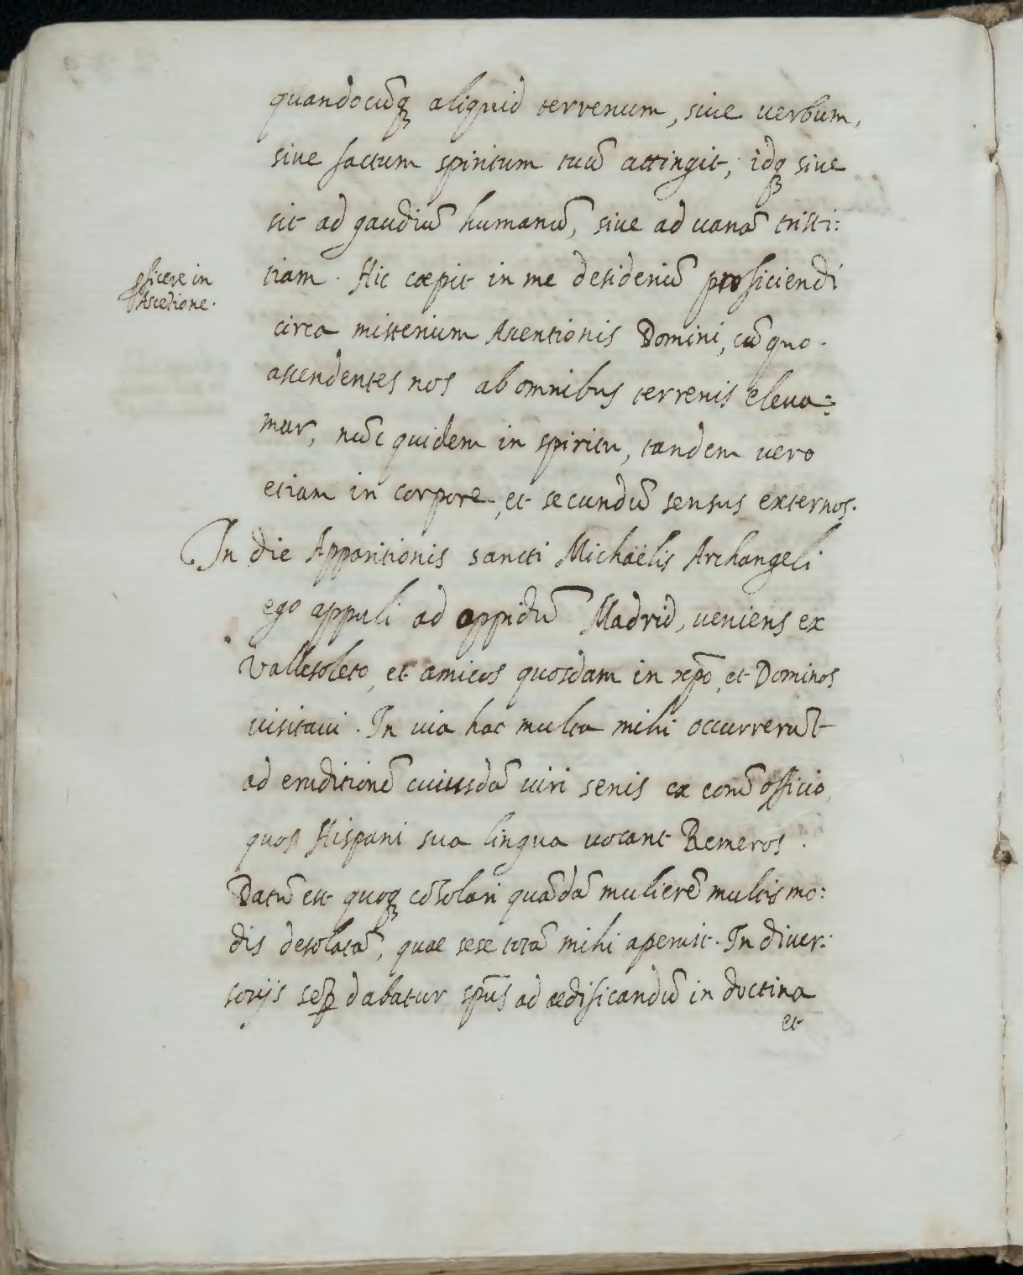 quandocūq̃ aliquid terrenum, siue uerbum,
siue factum spiritum tuū attingit; idq̃ siue
sit ad gaudiū humanū, siue ad uanā tristi:
tiam. Hic cœpit in me desideriū proficiendi
ficere in
Ascētione.
circa misterium Ascentionis Domini, cū quo
ascendentes nos ab omnibus terrenis eleua:
mur, nūc quidem in spiritu, tandem uero
etiam in corpore, et secundū sensus externos.
In die Apparitionis sancti Michaëlis Archangeli
ego appuli ad oppidū Madrid, ueniens ex
Vallesoleto, et amicos quosdam in xp̄o, et Dominos
uisitaui. In uia hac multa mihi occurrerūt
ad eruditionē cuiusdā uiri senis ex eorū officio,
quos Hispani sua lingua uocant Remeros.
Datū est quoq̃ cōsolari quādā mulierē multis mo:
dis desolatā, quae sese totā mihi aperuit. In diuer:
sorijs sēp dabatur sp̄us ad ædificandū in doctina
et